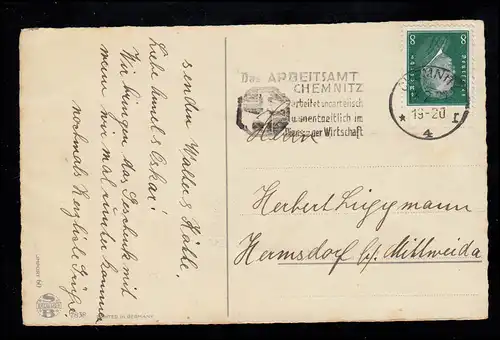 senden Walter & Käthe.
Liebe Annel & Oskar!
Wir bringen das Geschenk mit
wenn wir mal runter kommen
nochmals Herzliche Grüße!
Das ARBEITSAMT
CHEMNITZ
arbeitet unparteiisch
u. unentgeltlich im
Dienste der Wirtschaft
CHEMNITZ
19-20
4
8
8
Deutsches Reich
Herrn
Herbert Liggmann
Hermsdorf b/. Mittweida
S
B
PRINTED IN GERMANY